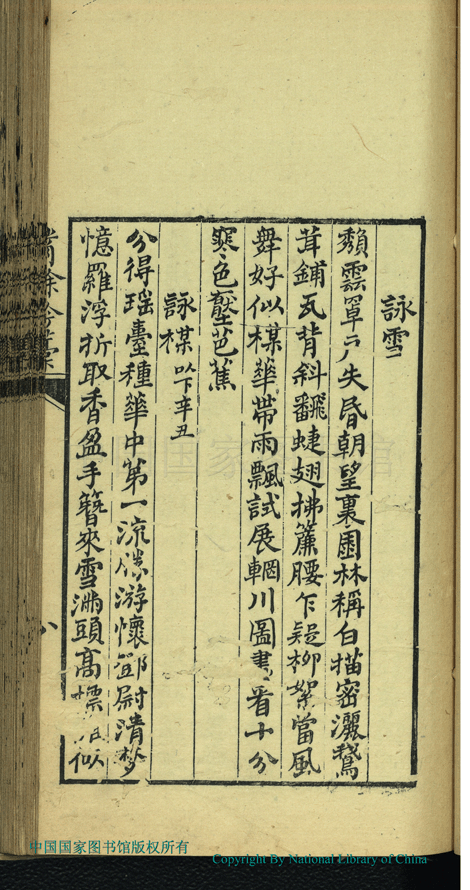 詠雪
頹雲罩失昏朝望裏園林稱白描密灑鵞
茸鋪瓦背斜飜蜨翅拂簾腰乍疑柳絮當風
舞好似楳華帶雨飄試展輞川圖畫看十分
寒色壓芭蕉
詠楳 以下辛丑
分得瑤臺種華中第一流游懷鄧尉清夢
憶羅浮折取香盈手簪來雪滿頭高標似
中国国家图书馆版权所有
Copyright By National Library of China